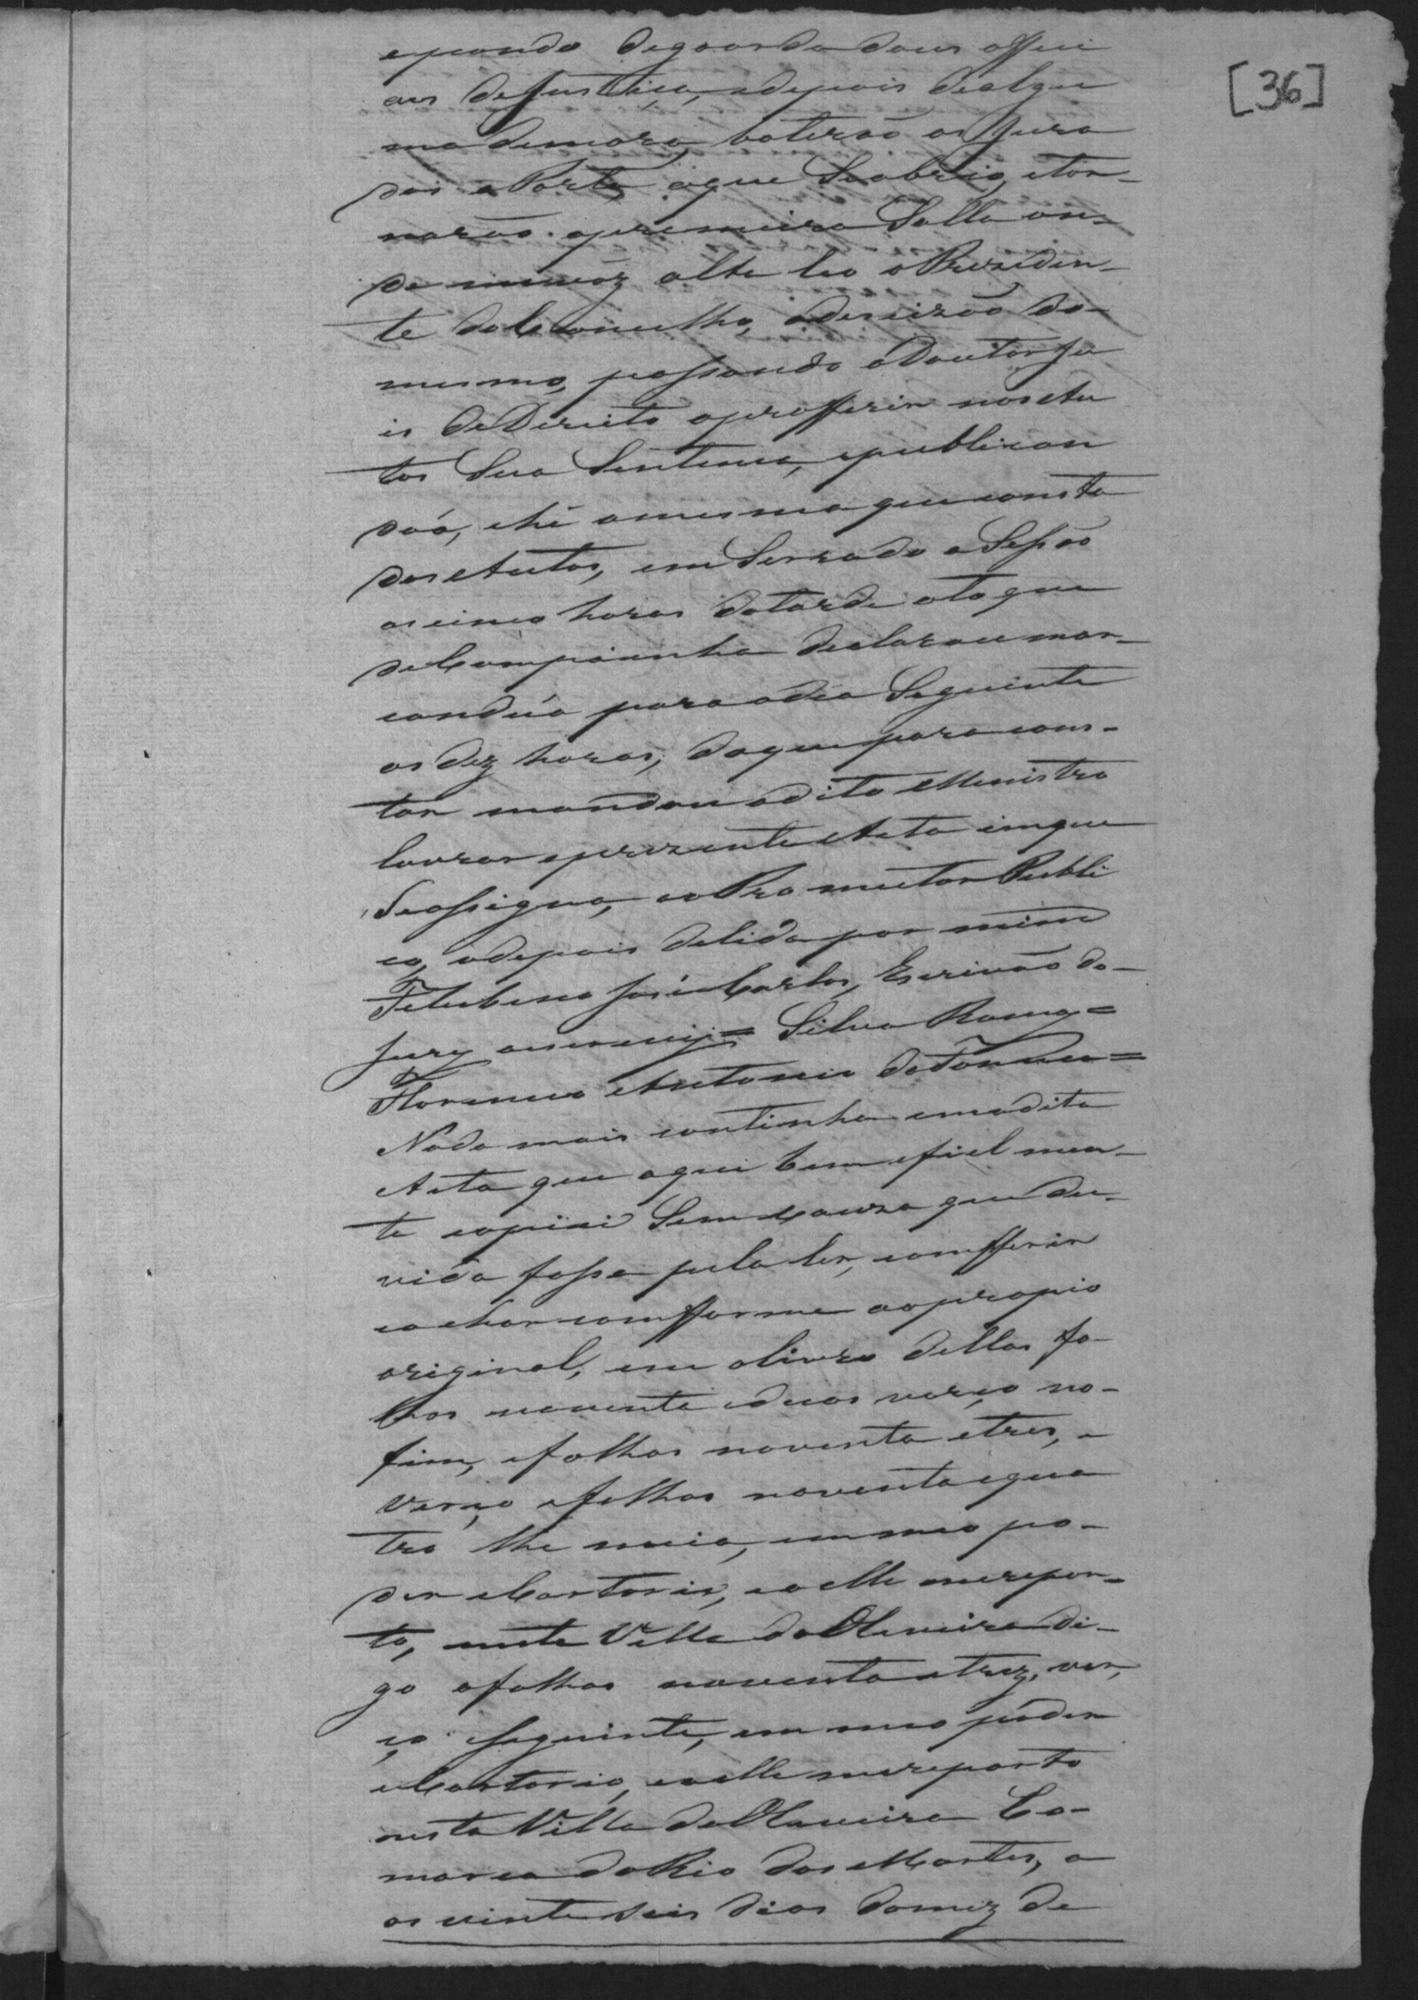 [36]
epondo de goarda dous offici
aes de Justiça, e depois de algu
ma demora, baterão os Jura
dos a Porta, a que Se abrio, e tor-
narão a primeira Salla on-
de em voz alta leo o Prezeden-
te do Concelho, a decizão do
mesmo, passando o Doutor Ju
is de Direito a profferir nos Au
tos Sua Sentença, e publican
do-á, hé a mesma que consta
dos Autos, em Serrado a Sessão
as cinco horas da tarde a toque
de Campainha declarou mar-
cando-á para o dia Seguinte
as dez horas, do que para cons-
tar mandou o dito Menistro
lavrar a prezente Acta em que
Se assigna, e o Promutor Publi
co, e depois de lida por mim
José Carlos, Escrivão do
Jury, o escrevij = Silva Ramos =
Florencio Antonio da Fonseca =
Nada mais continha em a dita
Acta que aqui bem e fiel men-
te copiei Sem Couza que du-
vida fassa pela ler, comfferir
e achar comfforme ao propio
original, em o livro dellas fo-
lhas noventa e duas verço no
fim, e folhas noventa e tres, e
verço e folhas noventa e qua
tro the meia, em meo po-
der e Cartorio, e a elle me repor-
to, nesta Villa da Oliveira di-
go a folhas noventa e trez, ver,
ço seguinte, em meo poder
e Cartorio, e a elle me reporto
nesta Villa da Oliveira Co-
marca do Rio das Mortes, a
os vinte seis dias do mez de